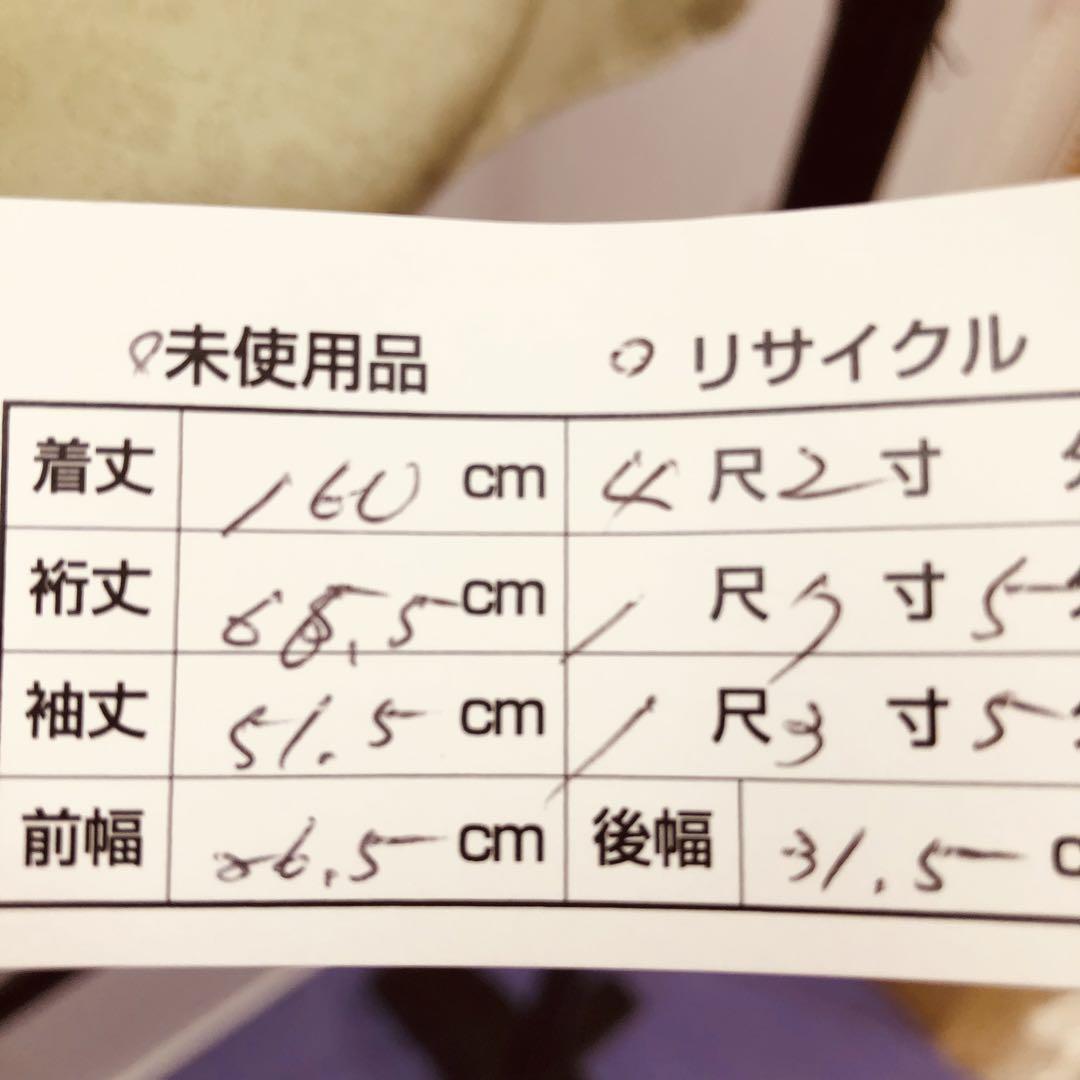 ○未使用品 ○ リサイクル
着丈 160 cm 4 尺 2 寸
裄丈 68.5 cm 1 尺 7 寸 5
袖丈 51.5 cm 1 尺 3 寸 5
前幅 26.5 cm 後幅 31.5 c